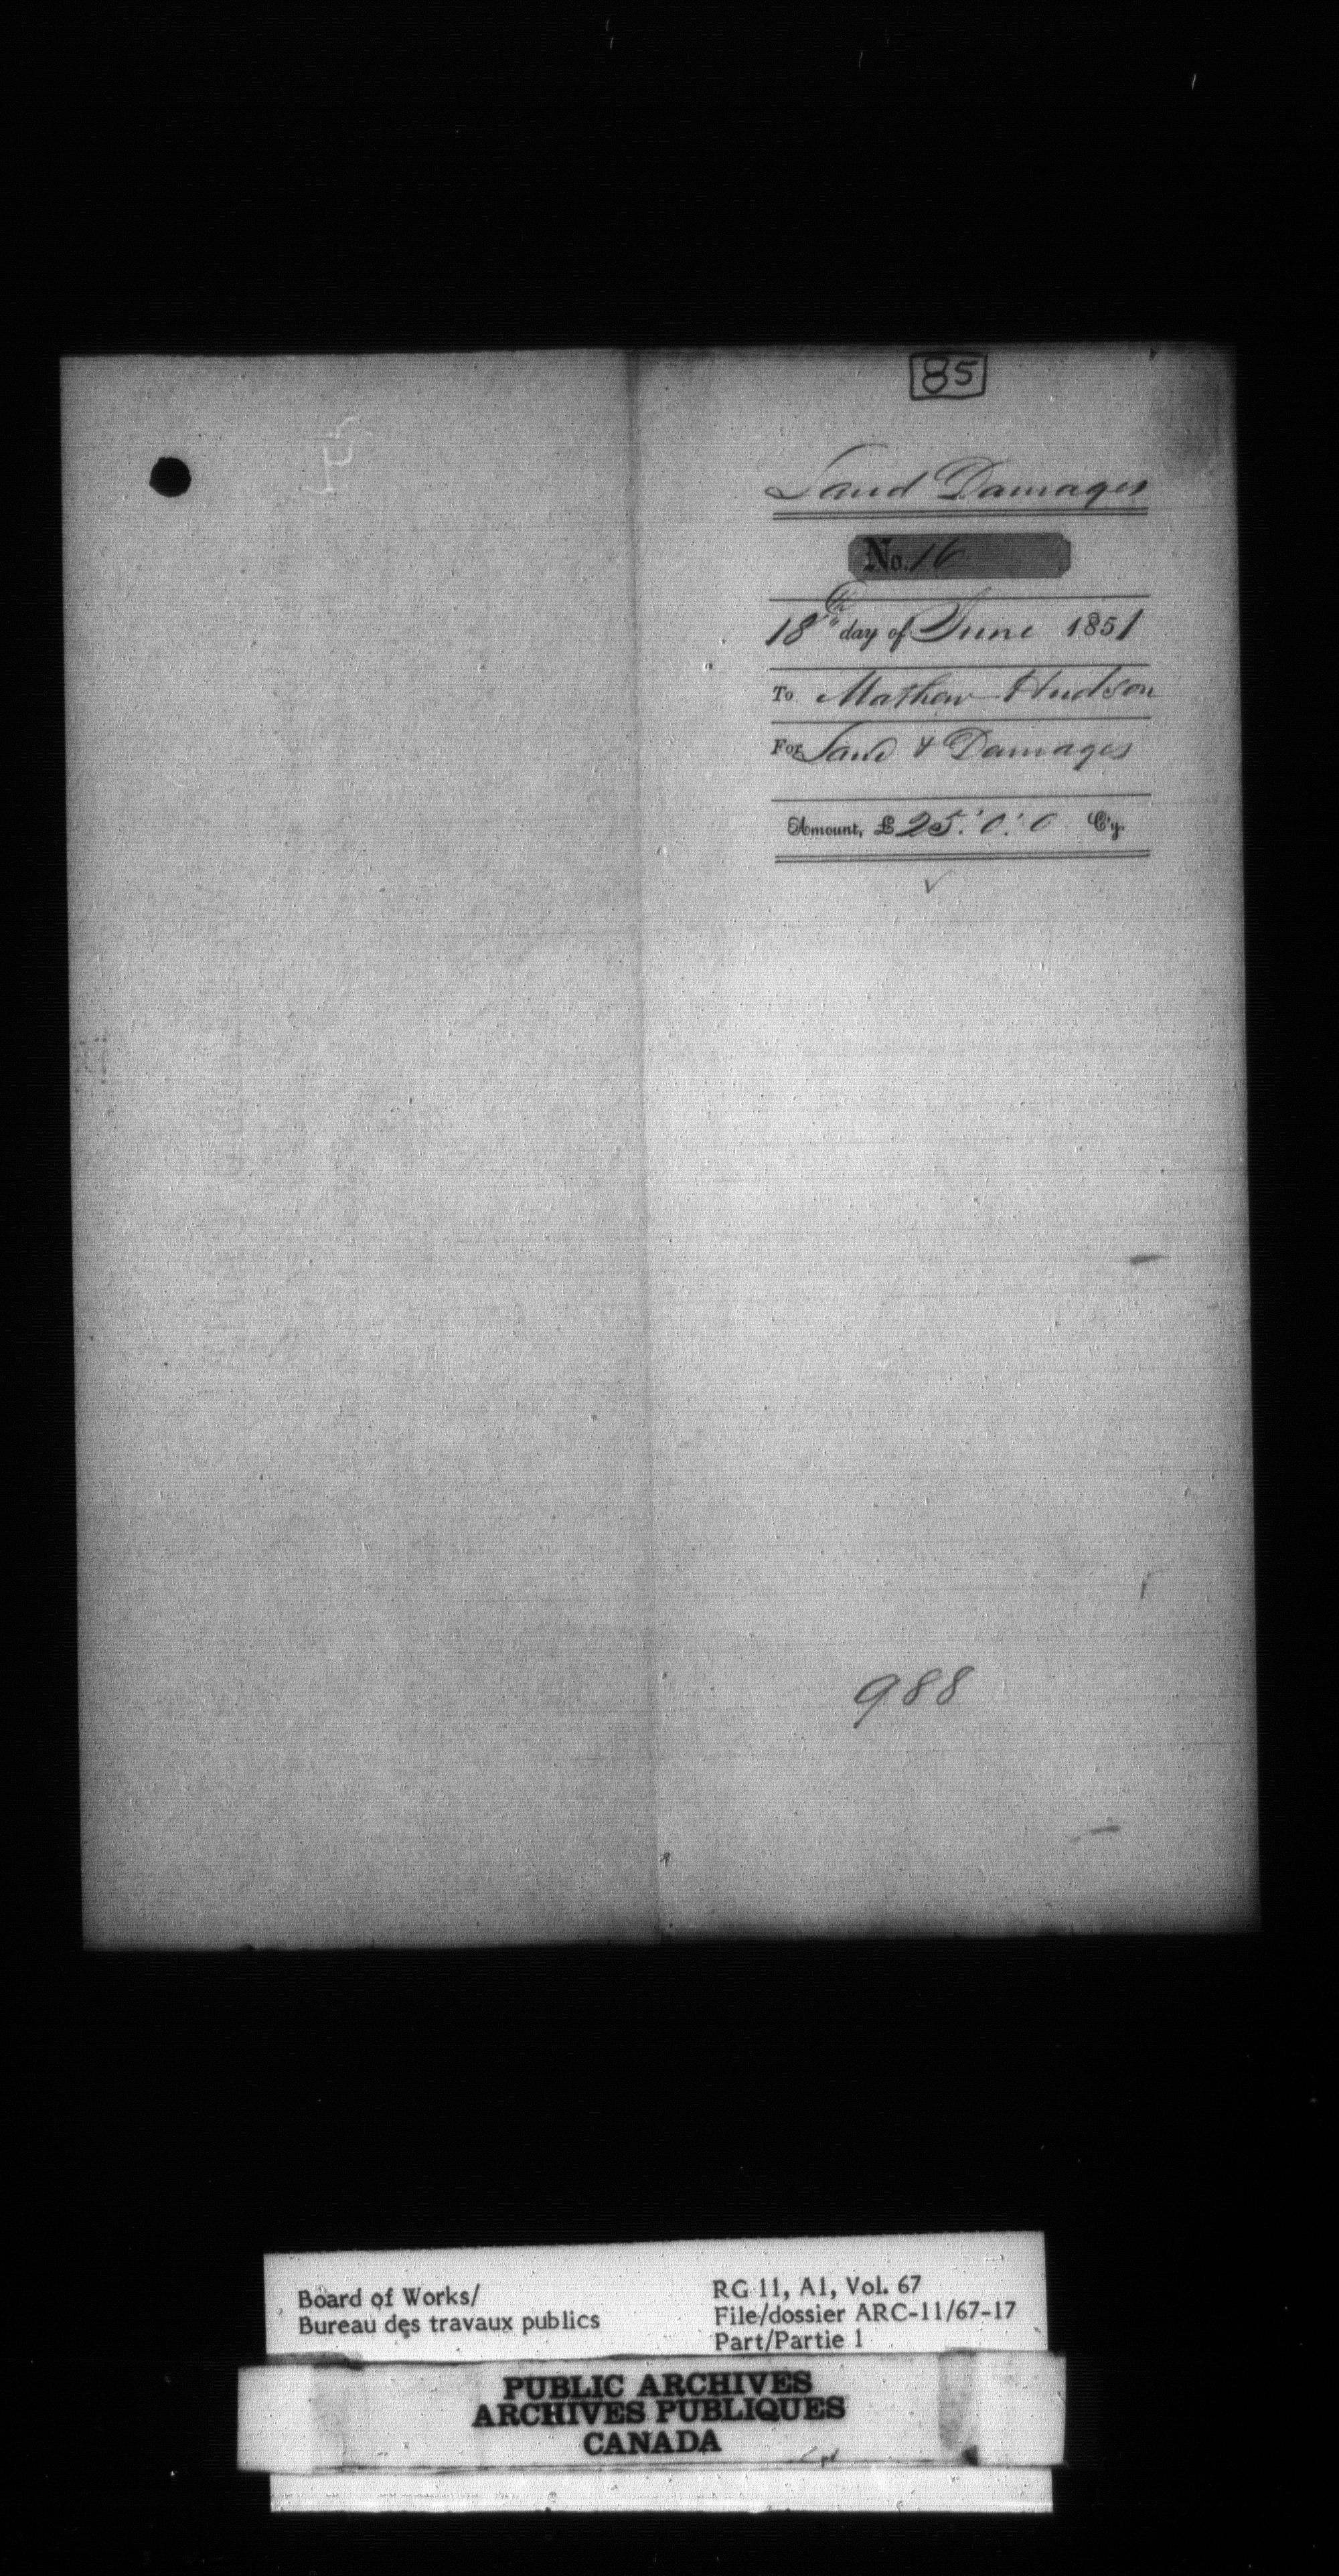 85
Land Damages
No. 16
18th day of June 1851
To Mathew Hudson
For Land & Damages
Amount, £ 25 . 0 . 0 C'y.
988
Board of Works/
Bureau des travaux publics
RG 11, A1, Vol. 67
File/dossier ARC-11/67-17
Part/Partie 1
PUBLIC ARCHIVES
ARCHIVES PUBLIQUES
CANADA